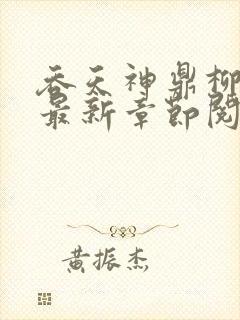 吞天神鼎柳
最新章节阅
黄振杰